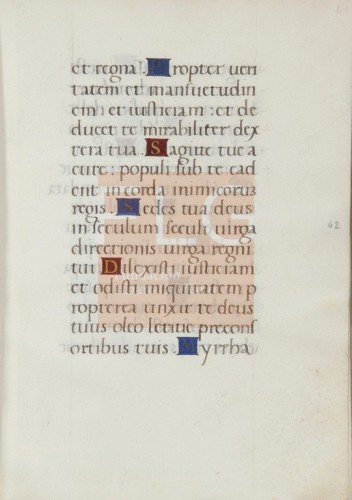 et regna. Propter ueri
tatem et mansuetudin
em : et iusticiam : et de
ducet te mirabiliter dex
tera tua. Sagitte tue a
cute : populi sub te cad
ent in corda inimicorum
regis. Sedes tua deus
in seculum seculi uirga
directionis uirga regni
tui. Dilexisti iusticiam
et odisti iniquitatem p
ropterea unxit te deus
tuus oleo letitie preconſ
ortibus tuis. Myrrha
42